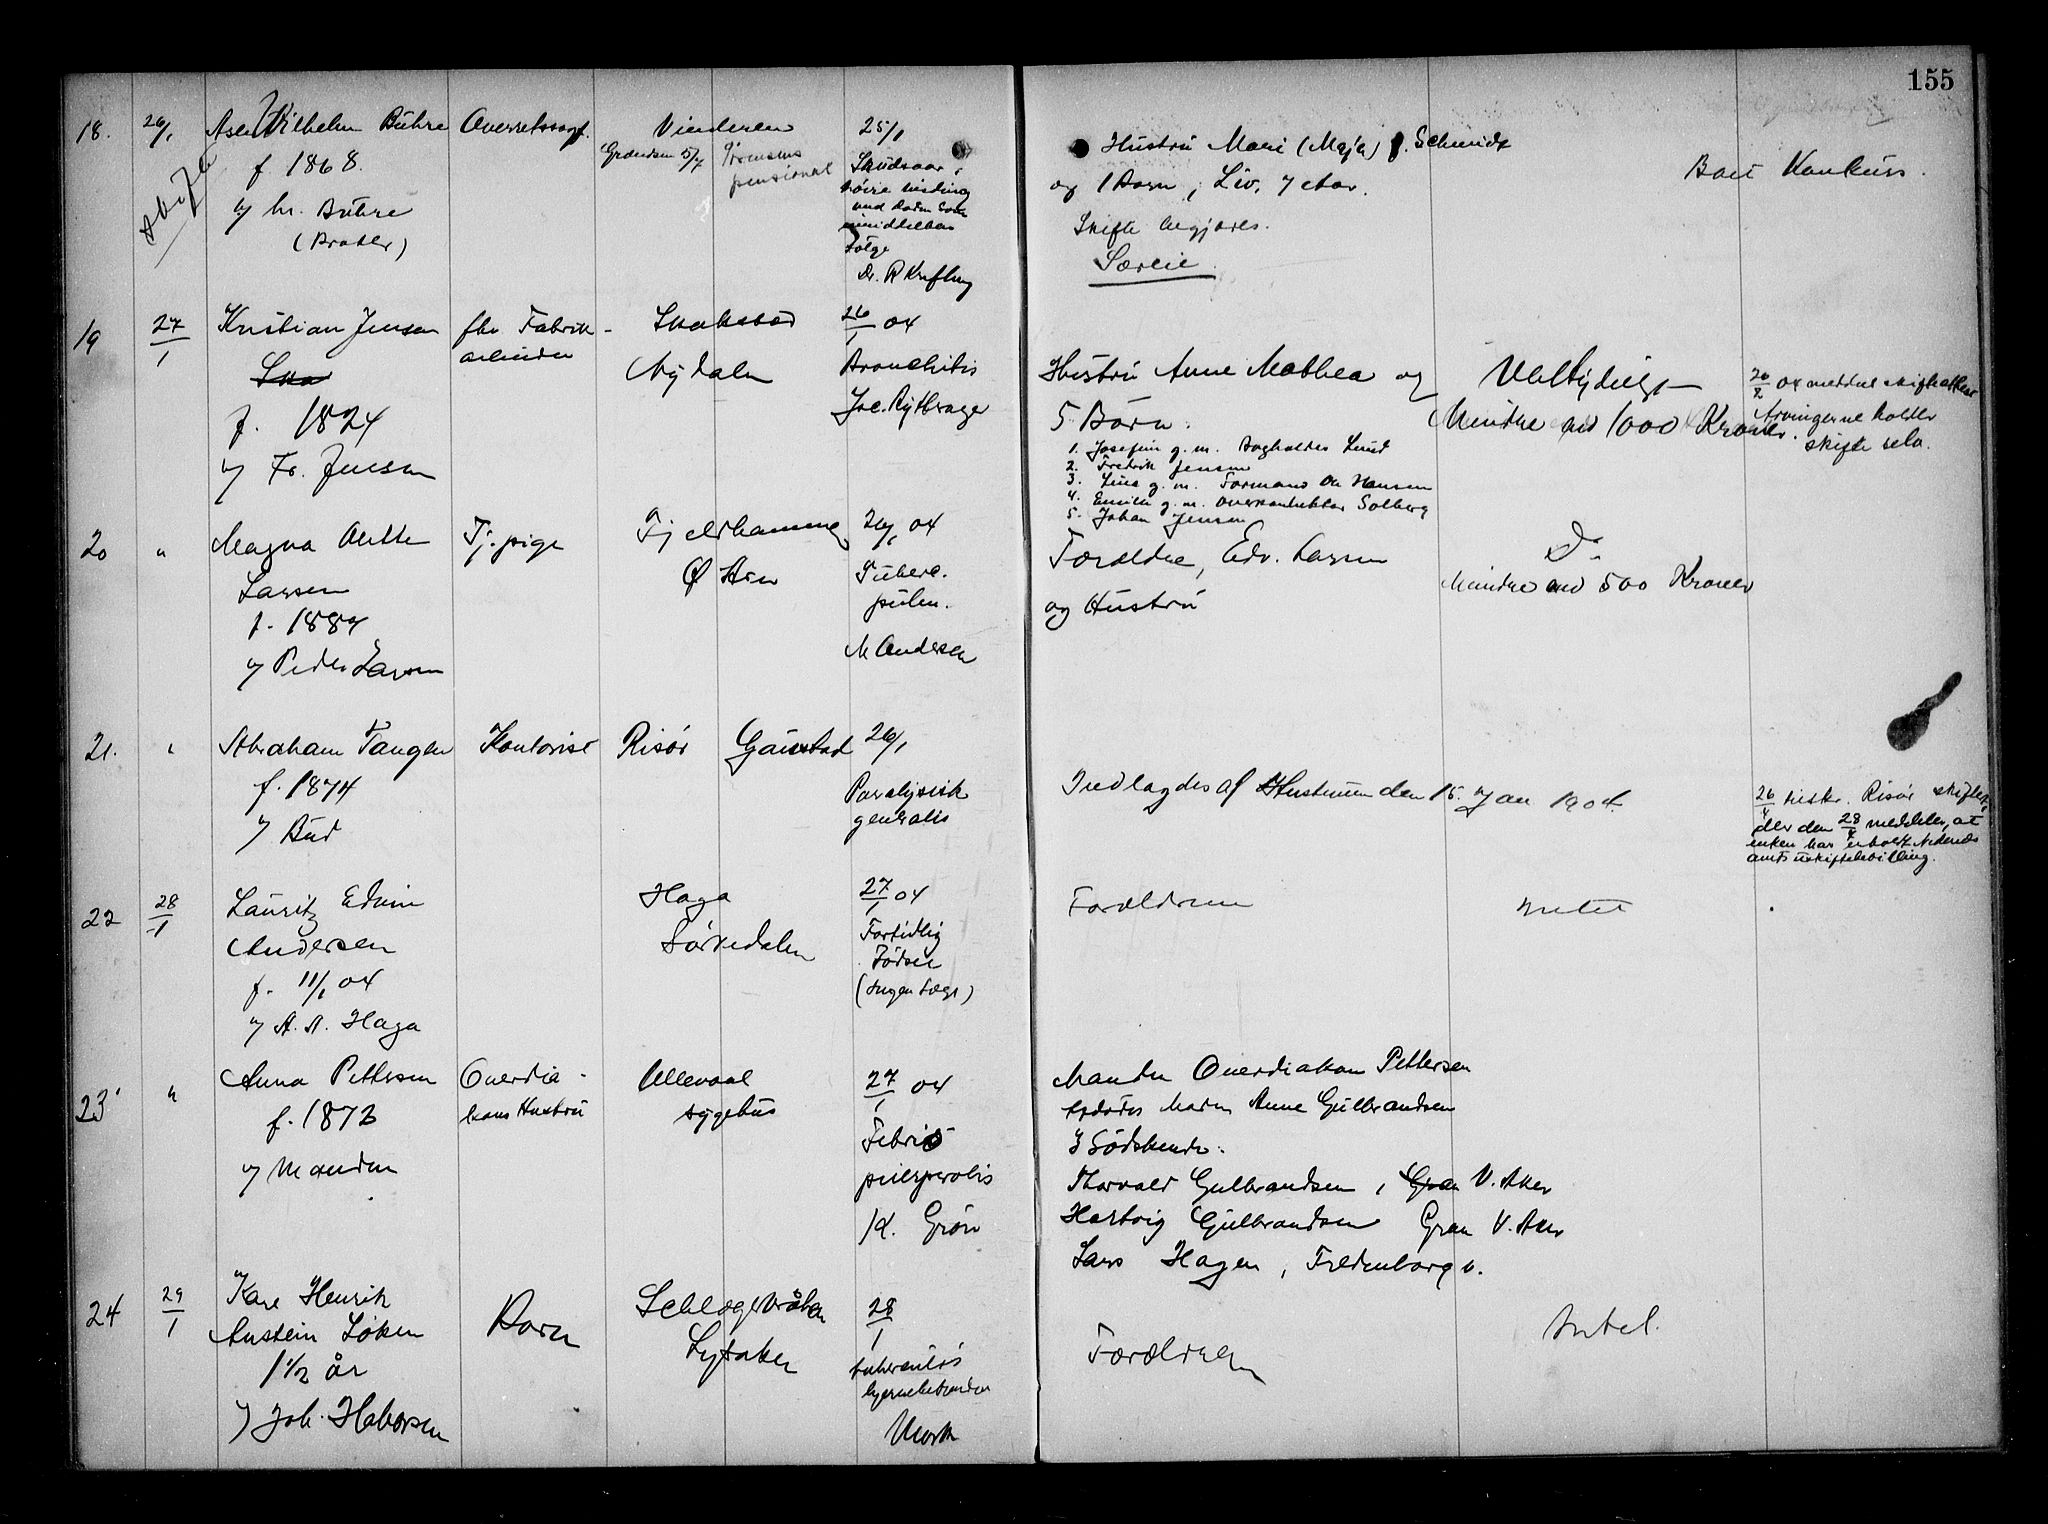 155
18. 26/1 Wilhelm Bühre Overretssagf. Vinderen 25/1
Skifte
f 1868. Grændsen 5/7 pensionat
v/ hr. Bühre
(Broder)
Skudsaar i
høire tinding
med Døden som
umiddelbar
Følge
Dr. R
Hustru Mari (Maja) f. Schmidt
og 1 Barn, Liv, 7 Aar.
Skifte begjæres.
Særeie
Boet Konkurs.
19 27/1 Kristian Jensen fhv Fabrik-
arbeider
Nydalen
26/1 04
Bronchitis
f. 1824
v/ Fr. Jensen
Hustru Anne Mathea og
5 Børn:
1. Josefine g. m. Bogholder Lund
2. Fredrik Jensen
3. Lina g. m. Formand Ole Hansen
4. Emilie g. m. Solberg
5. Johan Jensen
Ubetydeligt
Mindre end 1000 Kroner.
26/2 04 meddelt skifteattest
Arvingerne holder
skifte selv.
20 " Magna
Larsen
f. 1884
v/ Peder Larsen
Tj. pige
Fjeldhammer
Ø Aker
26/1 04
Tuberc.
pulm.
M Andersen
Forældre, Edv. Larsen
og Hustru
Do
Mindre end 500 Kroner
21. " Abraham Tangen Kontorist Risør Gaustad 26/1
f. 1874
v/ Bud
Paralysis
generalis
Indlagdes af Hustruen den 15. Jan 1904.
26/4 tilskr. Risør skifter,
der den 28/4 meddeler, at
enken har erholdt Nedenes
amts uskiftebevilling.
22 28/1 Lauritz Edvin
Andersen
f. 11/1 04
v/ A. A. Haga
Haga
Sørkedalen
27/1 04
Fortidlig
Fødsel
(Ingen Læge)
Forældrene
Intet
23 " Anna Pettersen
f. 1873
v/ Manden
Overdia-
kons Hustru
Ullevaal
sygehus
27/1 04
Febris
puerperalis
K. Grøn
Manden Overdiakon Pettersen
Moder Anne Gulbrandsen
3 Södskende:
Thorvald Gulbrandsen, Gran V. Aker
Hartvig Gulbrandsen Gran V. Aker
Lars Hagen, Fredensborgv.
24 29/1 Kåre Henrik
Austein Løken
1 1/2 år
v/ Joh. Halvorsen
Barn
Lysaker
28/1
tuberculøs
hjernebetændelse
Mork
Forældrene
Intet.